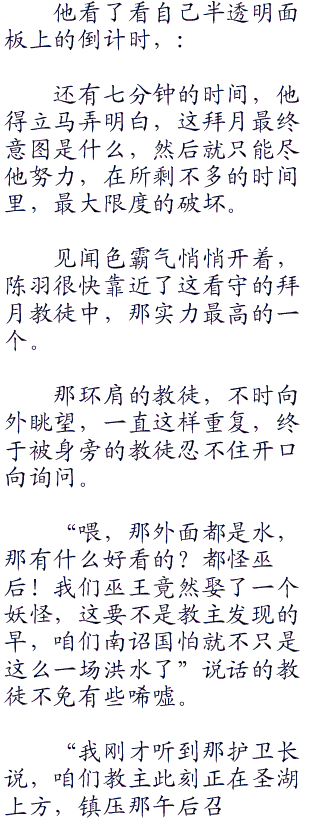 他看了看自己半透明面
板上的倒计时，：
还有七分钟的时间，他
得立马弄明白，这拜月最终
意图是什么，然后就只能尽
他努力，在所剩不多的时间
里，最大限度的破坏。
见闻色霸气悄悄开着，
陈羽很快靠近了这看守的拜
月教徒中，那实力最高的一
个。
那环肩的教徒，不时向
外眺望，一直这样重复，终
于被身旁的教徒忍不住开口
向询问。
“喂，那外面都是水，
那有什么好看的？都怪巫
后！我们巫王竟然娶了一个
妖怪，这要不是教主发现的
早，咱们南诏国怕就不只是
这么一场洪水了”说话的教
徒不免有些唏嘘。
“我刚才听到那护卫长
说，咱们教主此刻正在圣湖
上方，镇压那午后召